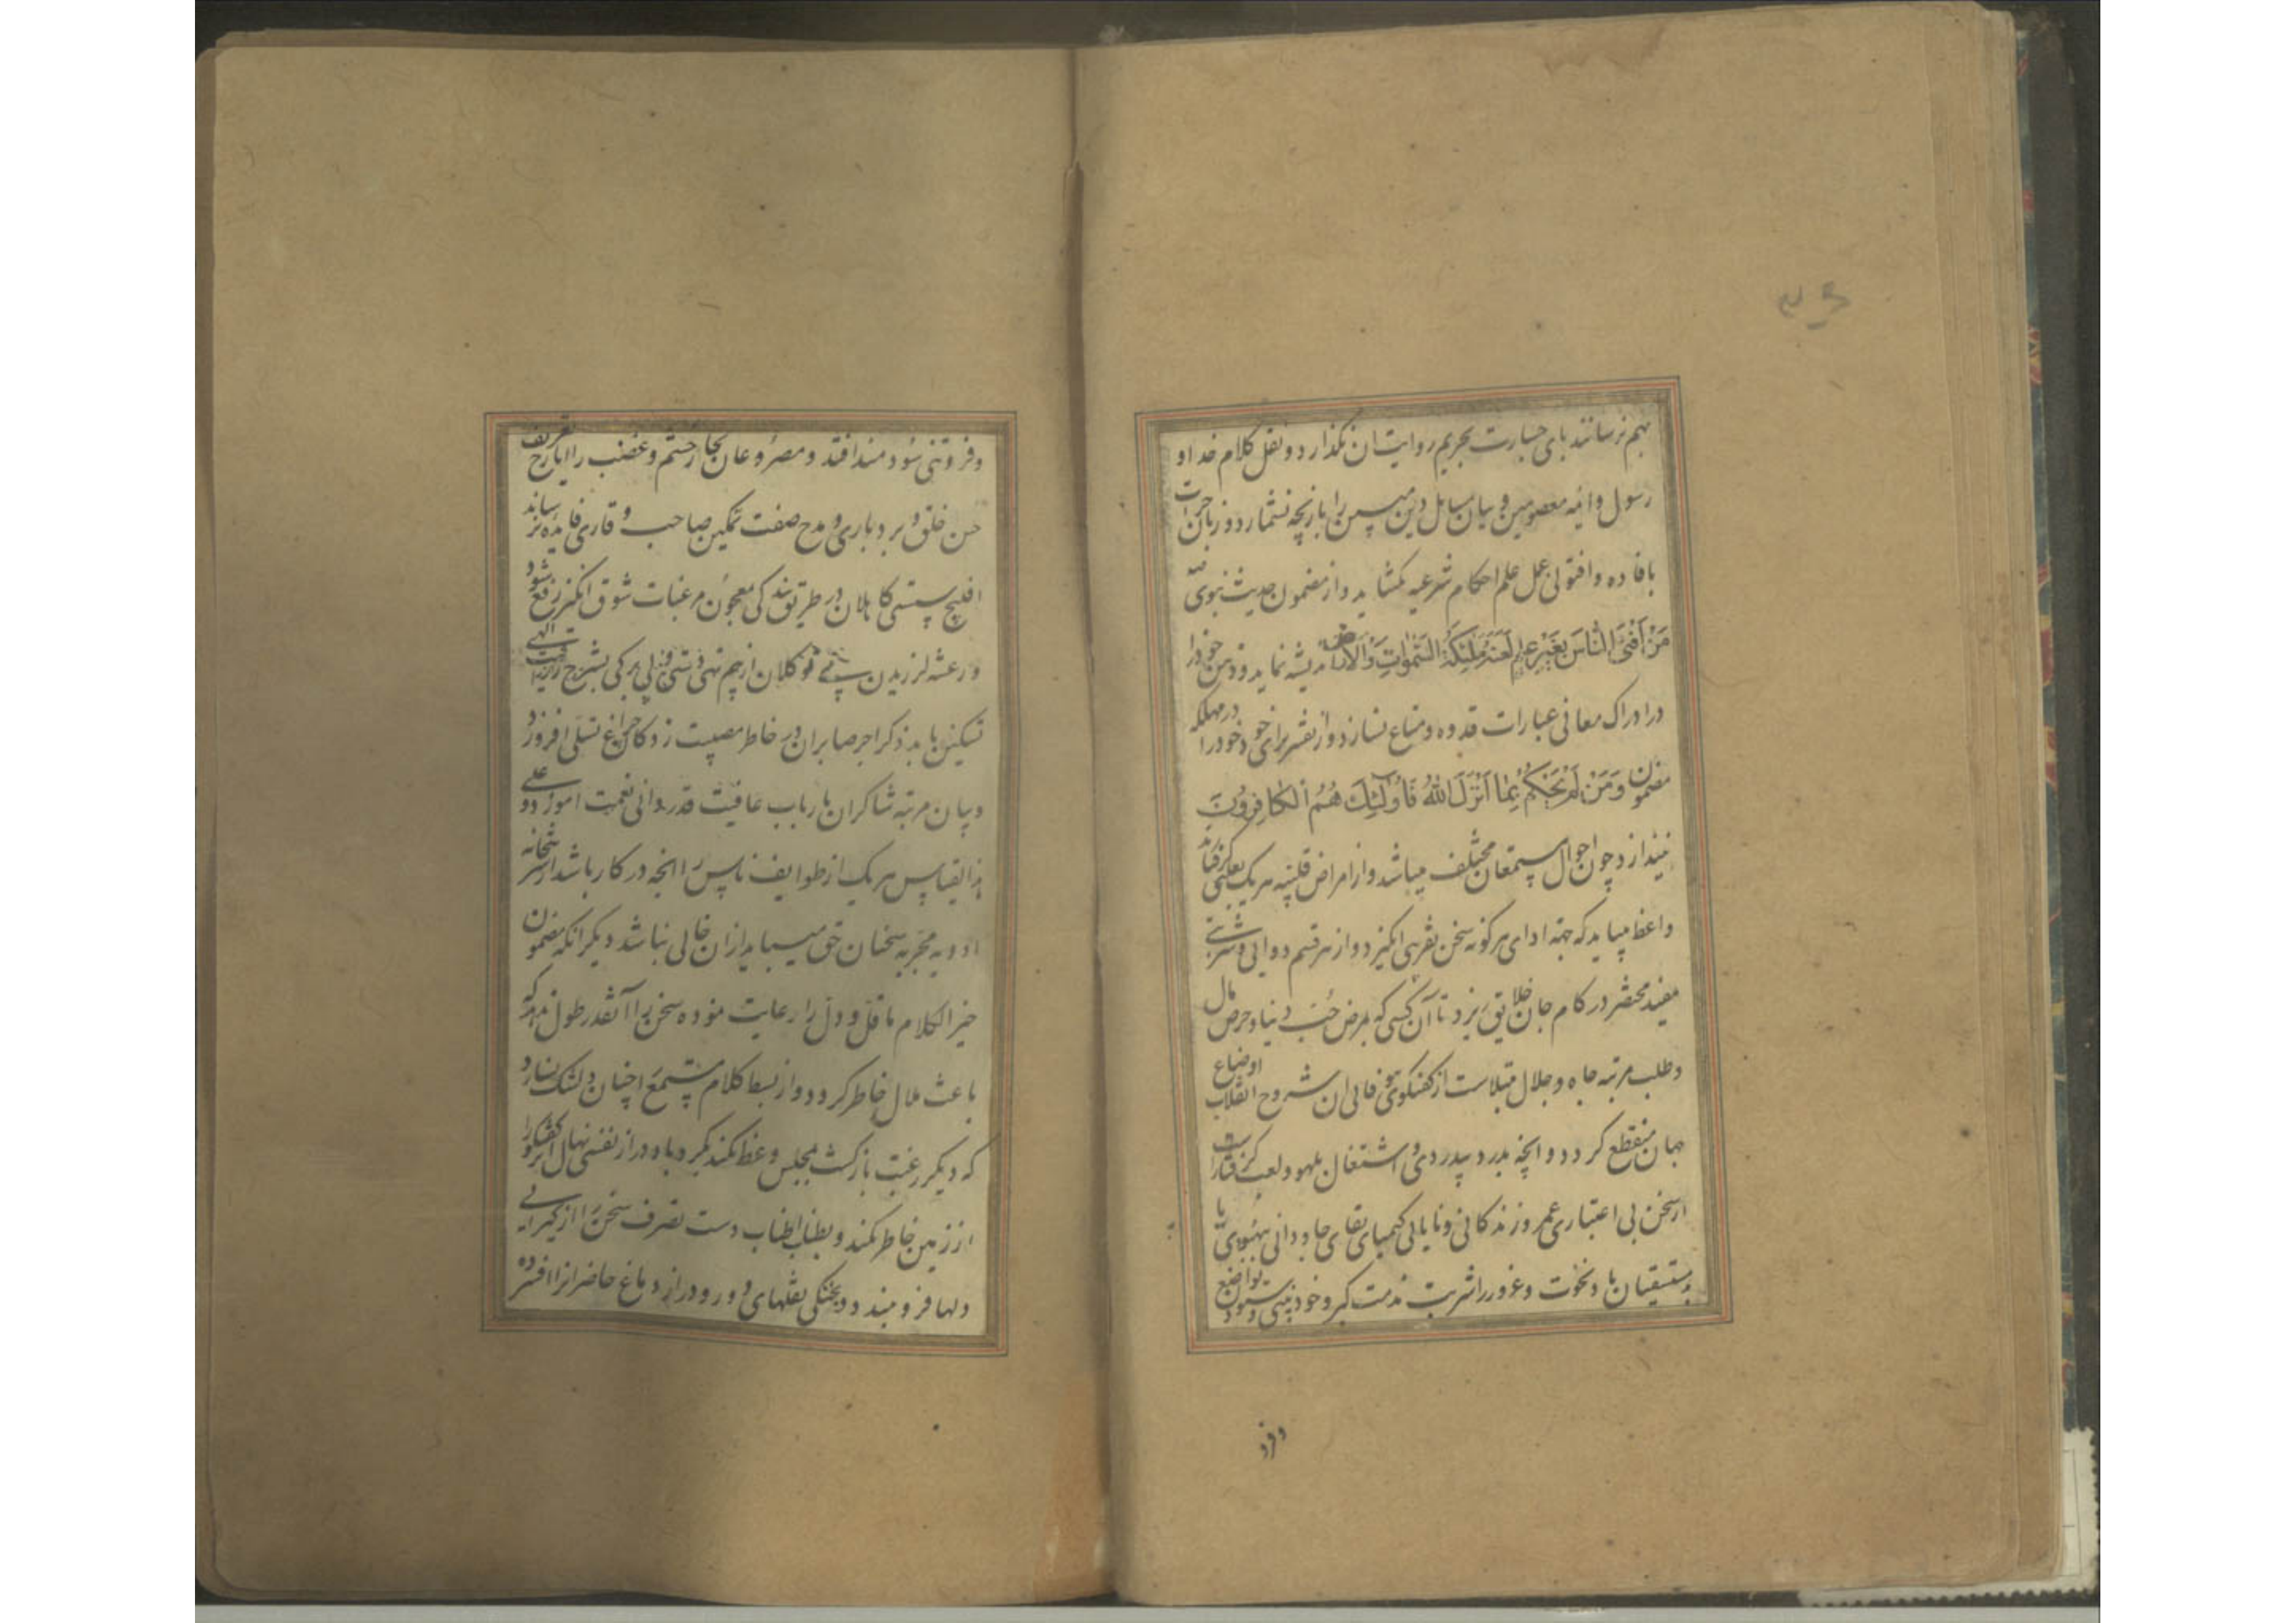 بهم نرسانند پای جسارت بحریم روایت ان نگذارد و نقل کلام خدا و
رسول و ائمه معصومین و بیان مسایل دین مبین را بازیچه نشمارد و زبان جرات
بافاده و افتو لی عمل علم احکام شرعیه نگشاید و از مضمون حدیث نبوی
مَنْ أَفْتَى النَّاسَ بِغَيْرِ عِلْمٍ لَعَنَتْهُ مَلٰئِكَةُ السَّمٰوَاتِ وَالْاَرْضِ اندیشه نماید و ذهن خود را
در ادراک معانی عبارات قدوه و متاع نسازد و از تفسیر برای خود خود را در مهلکه
مضمون وَمَنْ لَمْ يَحْكُمْ بِمَا اَنْزَلَ اللهُ فَاُولٰئِكَ هُمُ الْكَافِرُونَ
نیندازد چون احوال مستمعان مختلف میباشد و از امراض قلبیه هر یک بعلتی گرفتارند
واعظ میباید که جهة ادای هر گونه سخن تقریبی انگیزد و از هر قسم دوایی و شربتی
مفید مختصر در کام جان خلایق ریزد تا آن کسی که بمرض حب دنیا و حرص مال
و طلب مرتبه جاه و جلال مبتلاست از گفتگوی فانی ان مشروح انقلاب اوضاع
جهان منقطع گردد و انچه بدرد بیدردی و اشتغال بلهو و لعب گرفتار است
از سخن بی اعتباری عمر و زندگانی و نایابی کیمیای بقای جاودانی بهبودی یابد
مستسقیان باد نخوت و غرور را شربت مذمت کبر و خودبینی و ستودن تواضع
وفرو
وفروتنی سودمند افتد و مصروعان بخار خشم و غضب را ایارج تعریف
حسن خلق و بردباری و مدح صفت تمکین صاحب وقاری فایده رساند
افلیج سستی کاهلان در طریق بندگی بمعجون مرغبات شوق انگیز رفع شود
و رعشه لرزیدن متوکلان از بیم تهی دستی و بی برگی بشرح رزاقیت الهی
تسکین یابد ذکر اجر صابران در خاطر مصیبت زدکان چراغ تسلی افروزد
و بیان مرتبه شاکران بارباب عافیت قدردانی نعمت اموزد و علی
هذا القیاس هر یک از طوایف ناس را انچه در کار باشد از شربتخانه
ادویه مجربه سخنان حق میباید از ان خالی نباشد دیگر انکه مضمون
خیر الکلام ما قل و دل را رعایت نموده سخن را آنقدر طول ندهد که
باعث ملال خاطر گردد و از بسط کلام مستمع را چنان دلتنگ نسازد
که دیگر رغبت بازگشت مجلس وعظ نکند بگرد باد دراز نفسی نهال گفتگو را
از زمین خاطر نکند و بطناب اطناب دست تصرف سخن را از گیرایی
دلها فرو نبندد و بخنکی نقلهای دور و دراز دماغ حاضرانرا افسرده